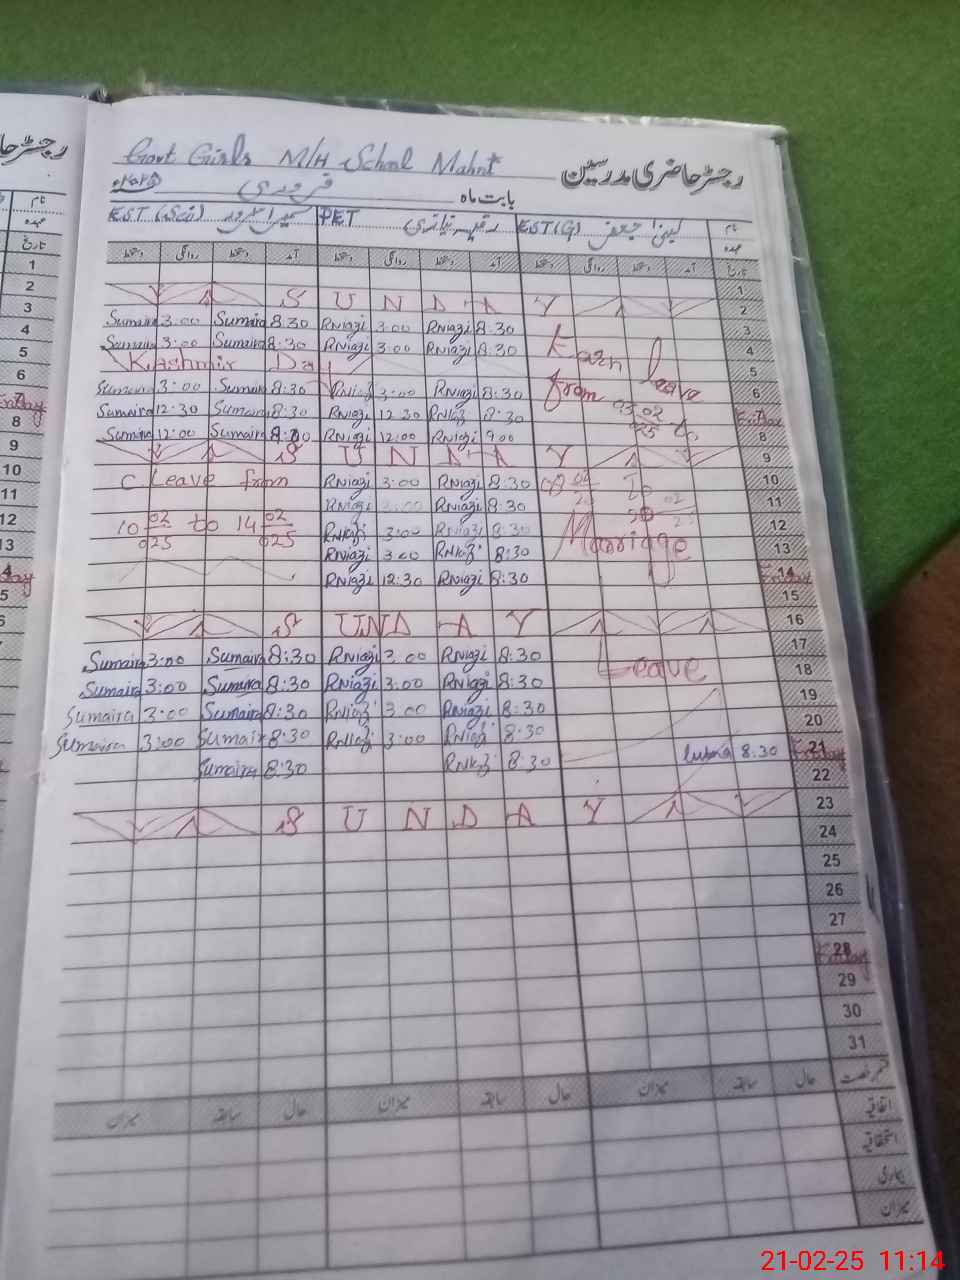 Govt Girls M/H School Mahnt
رجسٹر حاضری مدرسین
بابت ماہ فروری ۲۰۲۵
نام EST (G) لبنیٰ جعفر PET رقیہ نیازی EST (Sci) سمیرا سرور
عہدہ
تاریخ آمد دستخط روانگی دستخط آمد دستخط روانگی دستخط آمد دستخط روانگی دستخط
1
S U N D A Y 2
Sumaira 3:00 Sumaira 8:30 RNiazi 3:00 RNiazi 8:30 3
Sumaira 3:00 Sumaira 8:30 RNiazi 3:00 RNiazi 8:30 Earn leave 4
Kashmir Day 5
Sumaira 3:00 Sumaira 8:30 RNiazi 3:00 RNiazi 8:30 from 6
Sumaira 12:30 Sumaira 8:30 RNiazi 12:30 RNiazi 8:30 03.02 25 Friday 7
Sumaira 12:00 Sumaira RNiazi 12:00 RNiazi 9:00 8
S U N D A Y 9
C. Leave from RNiazi 3:00 RNiazi 8:30 To 10
RNiazi 3:00 RNiazi 8:30 11
10 02 025 to 14 02 025 RNiazi 3:00 RNiazi 8:30 Marriage 12
RNiazi 3:00 RNiazi 8:30 13
RNiazi 12:30 RNiazi 8:30 Friday 14
15
S U N D A Y 16
Sumaira 3:00 Sumaira 8:30 RNiazi 3:00 RNiazi 8:30 17
Sumaira 3:00 Sumaira 8:30 RNiazi 3:00 RNiazi 8:30 Leave 18
Sumaira 3:00 Sumaira 8:30 RNiazi 3:00 RNiazi 8:30 19
Sumaira 3:00 Sumaira 8:30 RNiazi 3:00 RNiazi 8:30 20
Sumaira 8:30 RNiazi 8:30 Lubna 8:30 Friday 21
22
S U N D A Y 23
24
25
26
27
Friday 28
29
30
31
قسم رخصت حال سابقہ میزان حال سابقہ میزان حال سابقہ میزان
اتفاقیہ
استحقاقیہ
بیماری
میزان
21-02-25 11:14